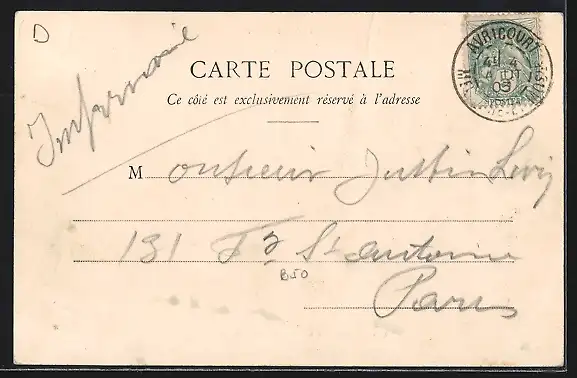 D
Imprimé
CARTE POSTALE
Ce côté est exclusivement réservé à l'adresse
AVRICOURT
4
03
POSTES
Monsieur Justin Levy
131 Fg St Antoine
B50
Paris